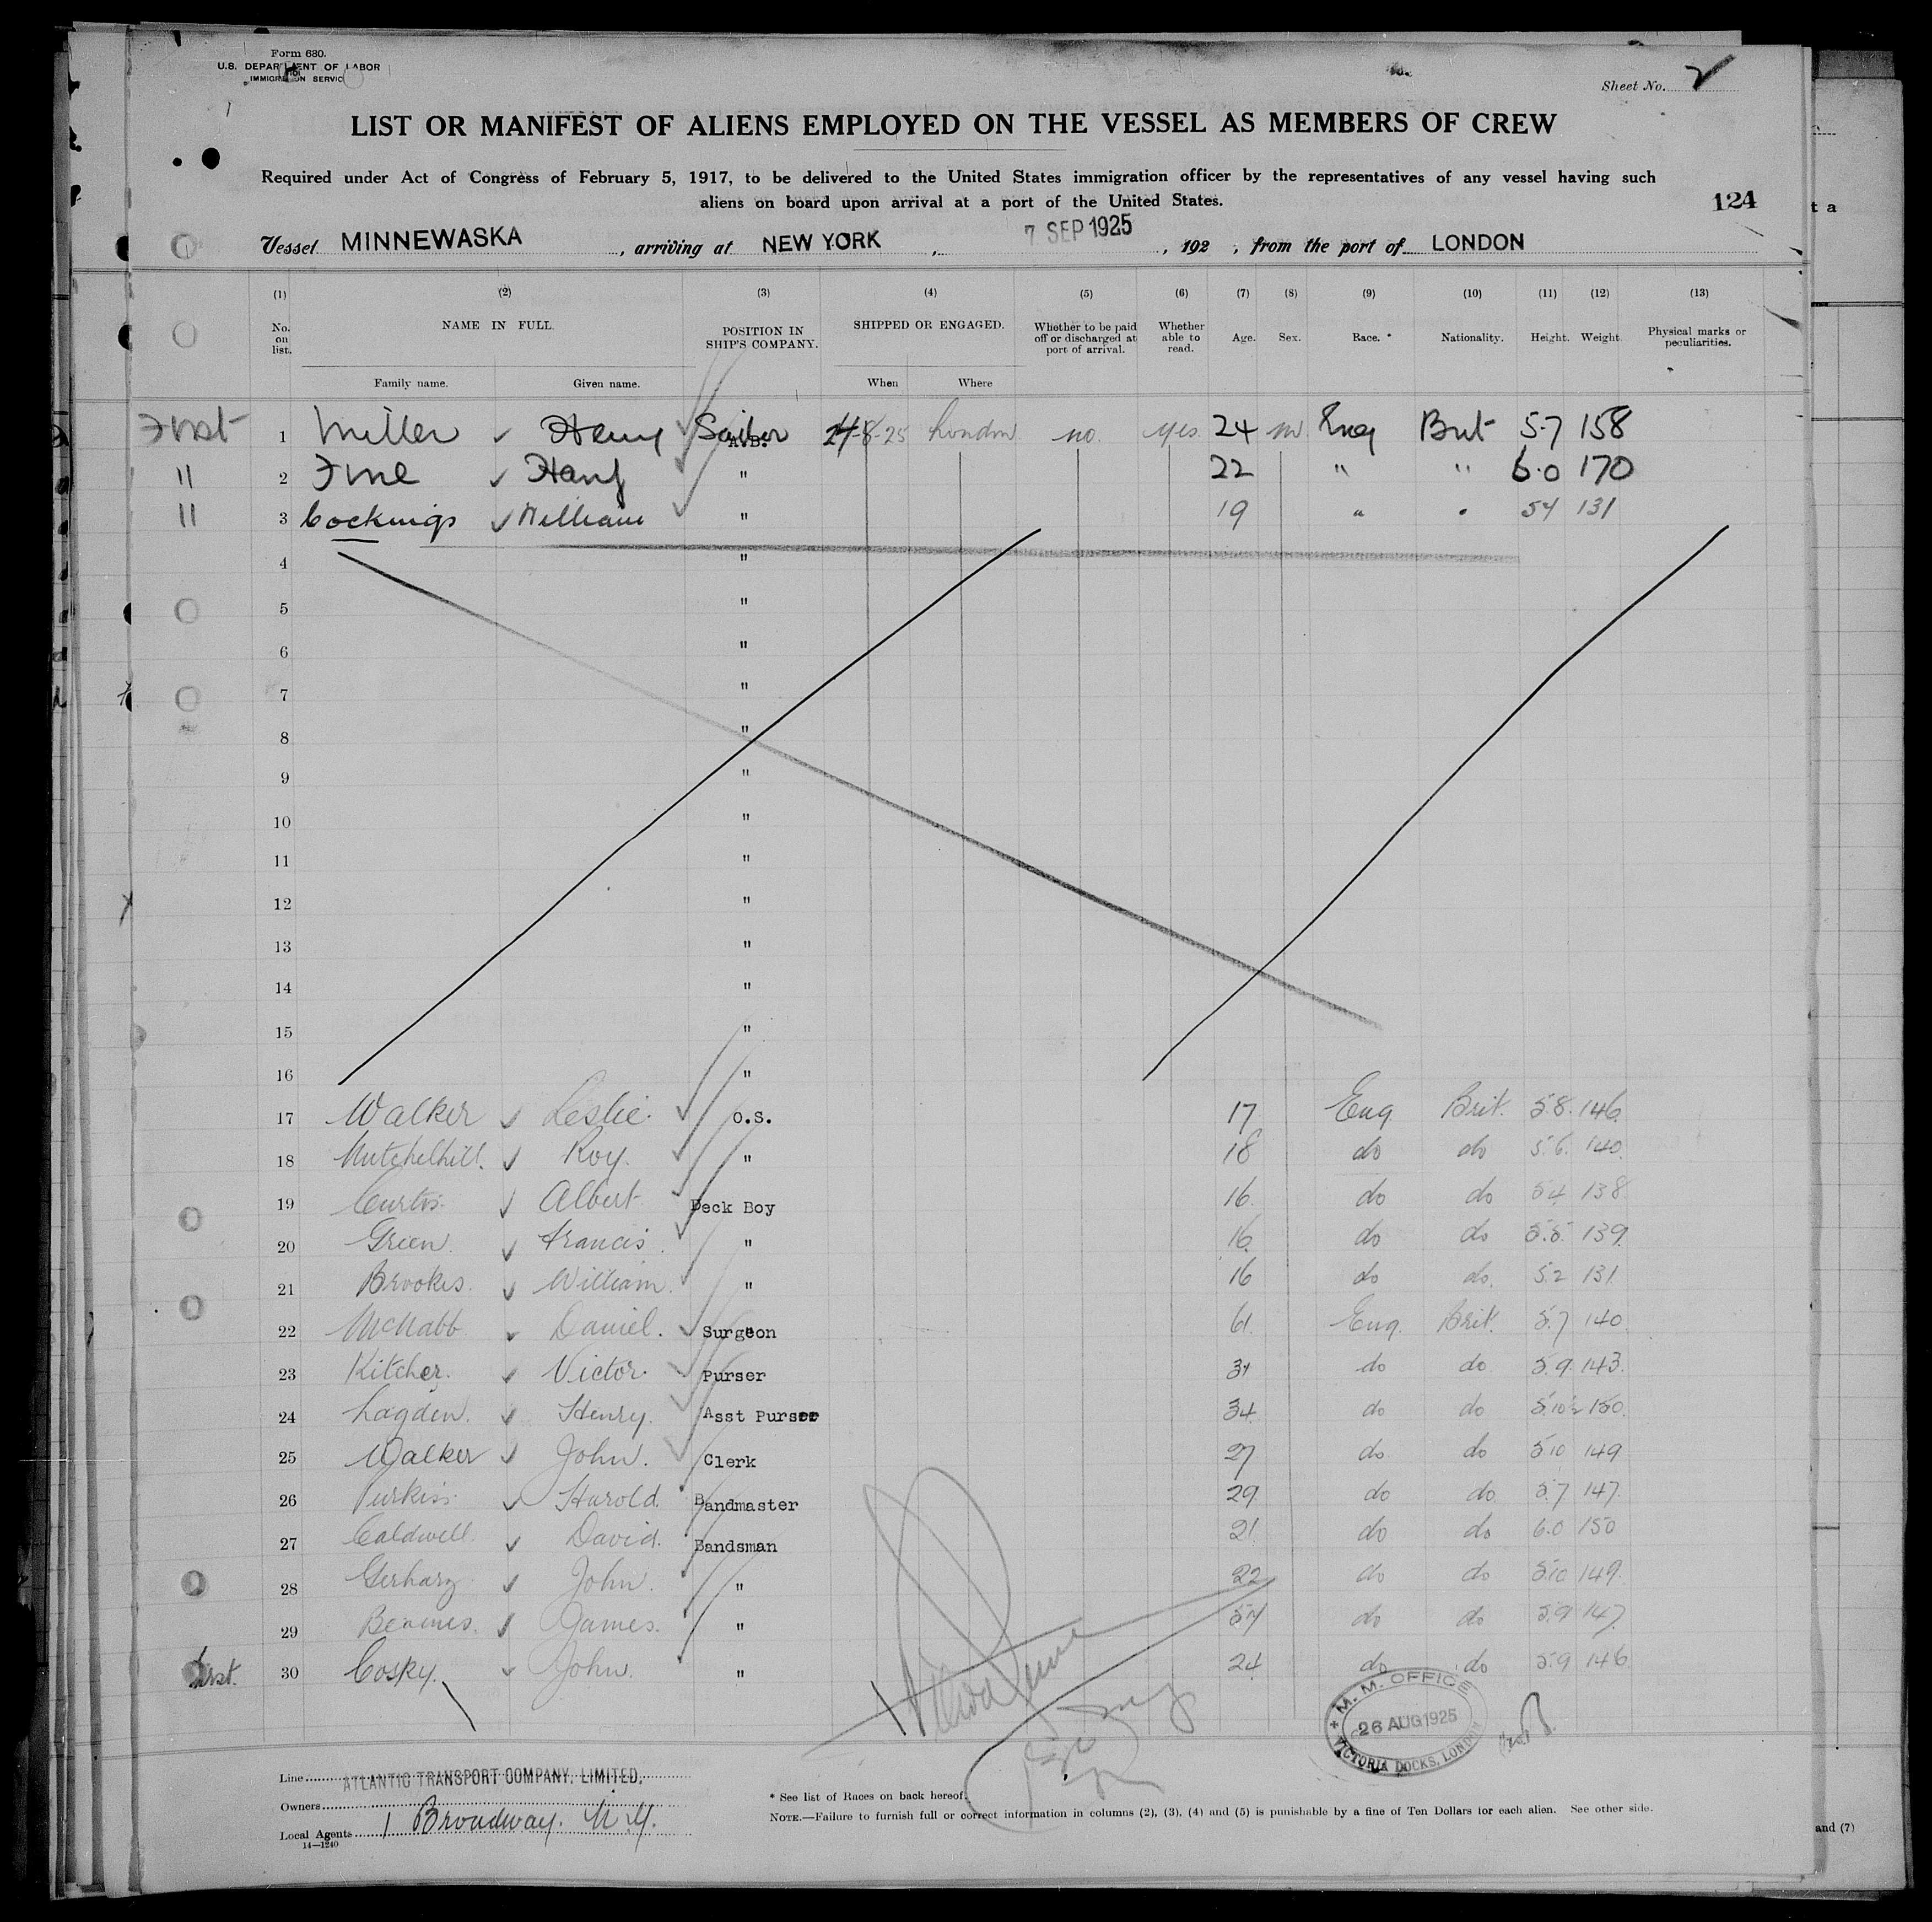 Form 680.
U.S. DEPARTMENT OF LABOR
IMMIGRATION SERVICE
Sheet No. 2
LIST OR MANIFEST OF ALIENS EMPLOYED ON THE VESSEL AS MEMBERS OF CREW
Required under Act of Congress of February 5, 1917, to be delivered to the United States immigration officer by the representatives of any vessel having such
aliens on board upon arrival at a port of the United States.
124
Vessel MINNEWASKA, arriving at NEW YORK, 7 SEP 1925, 192 , from the port of LONDON
(1) (2) (3) (4) (5) (6) (7) (8) (9) (10) (11) (12) (13)
No. on list. NAME IN FULL. POSITION IN SHIP'S COMPANY. SHIPPED OR ENGAGED. Whether to be paid off or discharged at port of arrival. Whether able to read. Age. Sex. Race. * Nationality. Height. Weight. Physical marks or peculiarities.
Family name. Given name. When Where
First 1 Miller Henry Sailor A.B. 24-8-25 London no. yes 24 m Eng Brit 5-7 158
" 2 Fine " 22 " " 6.0 170
" 3 Cockings William " 19 " " 54 131
4 "
5 "
6 "
7 "
8 "
9 "
10 "
11 "
12 "
13 "
14 "
15 "
16 "
17 Walker Leslie. O.S. 17 Eng Brit. 5.8. 146
18 Mutchelhill. Roy. " 18 do do 5.6. 140
19 Curtis. Albert Deck Boy 16 do do 54 138
20 Green. Francis. " 16 do do 5.5 139
21 Brookes. William. " 16 do do. 52 131
22 McNabb Daniel. Surgeon 61. Eng. Brit. 5.7 140
23 Kitcher. Victor. Purser 31 do do 5.9. 143.
24 Lagden. Henry. Asst Purser 34 do do 5.10½ 150.
25 Walker John. Clerk 27 do do 510 149
26 Purkiss. Harold. Bandmaster 29 do do 5.7 147.
27 Caldwell. David. Bandsman 21 do do 6.0 150
28 Gerharz John. " 22 do do 510 149.
29 Beames. James. " 54 do do 5.9 147
First. 30 Cosky. John. " 24 do do 59 146
M. M. OFFICE
26 AUG 1925
VICTORIA DOCKS, LONDON
Line ATLANTIC TRANSPORT COMPANY, LIMITED.
Owners
Local Agents 1 Broadway. N.Y.
14—1240
* See list of Races on back hereof.
NOTE.—Failure to furnish full or correct information in columns (2), (3), (4) and (5) is punishable by a fine of Ten Dollars for each alien. See other side.
t a
and (7)